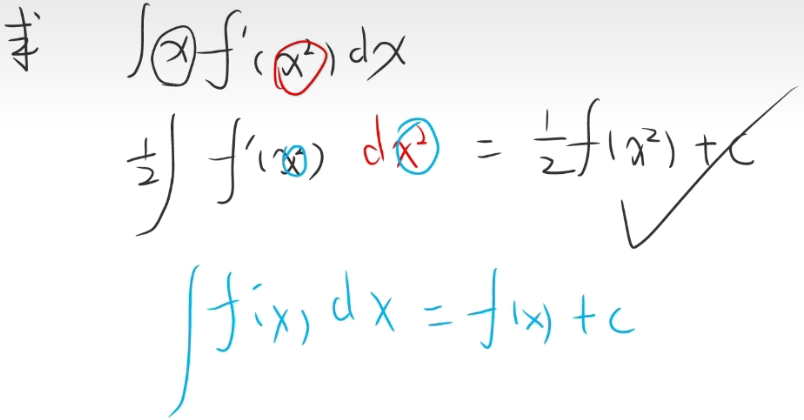 求 ∫x f'(x²) dx
½∫ f'(x²) dx² = ½f(x²) + c
∫f'(x) dx = f(x) + c